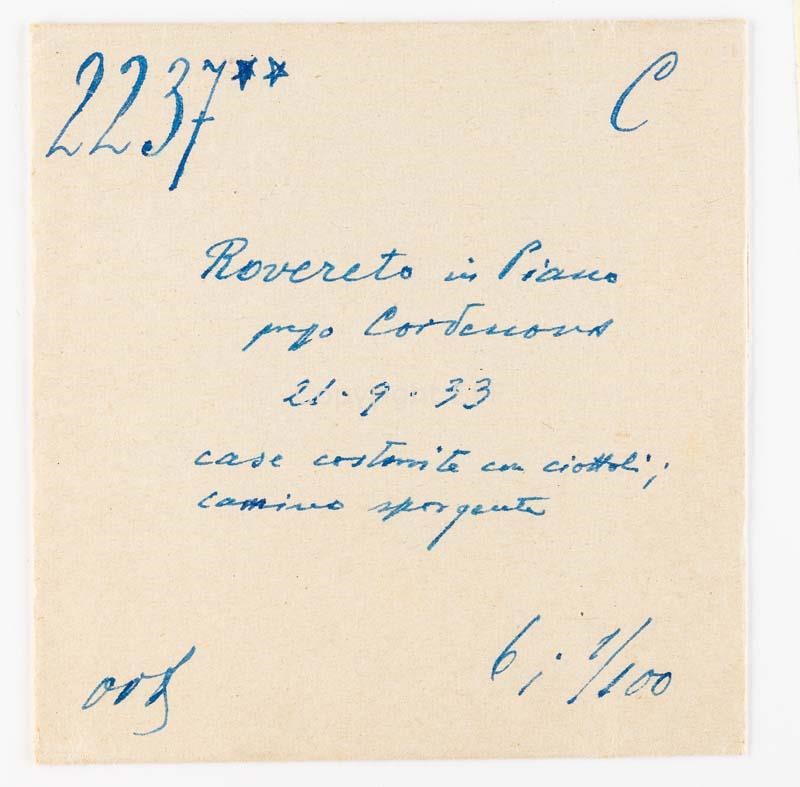 2237** C
Rovereto in Piano
presso Cordenons
21.9.33
case costruite con ciottoli;
camino sporgente
6; 1/100